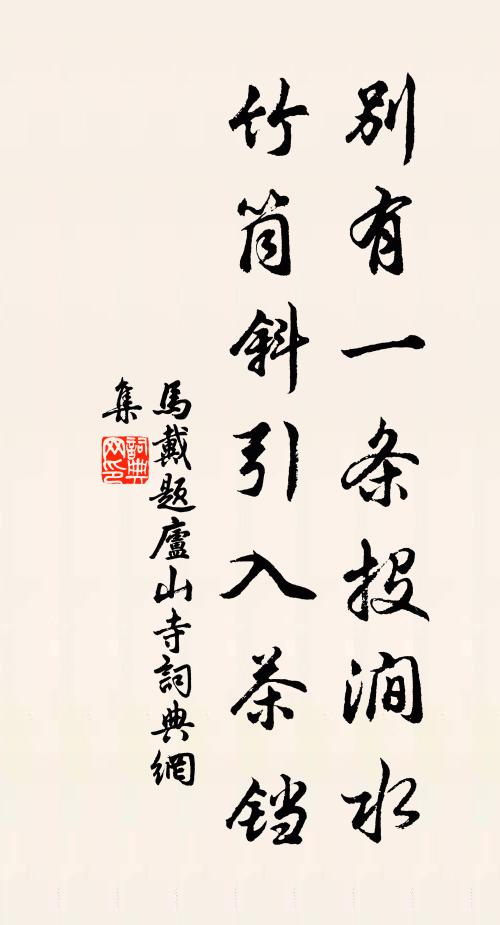 別有一条投澗水
竹筒斜引入茶铛
馬戴題廬山寺詞典網
集
詞典網印